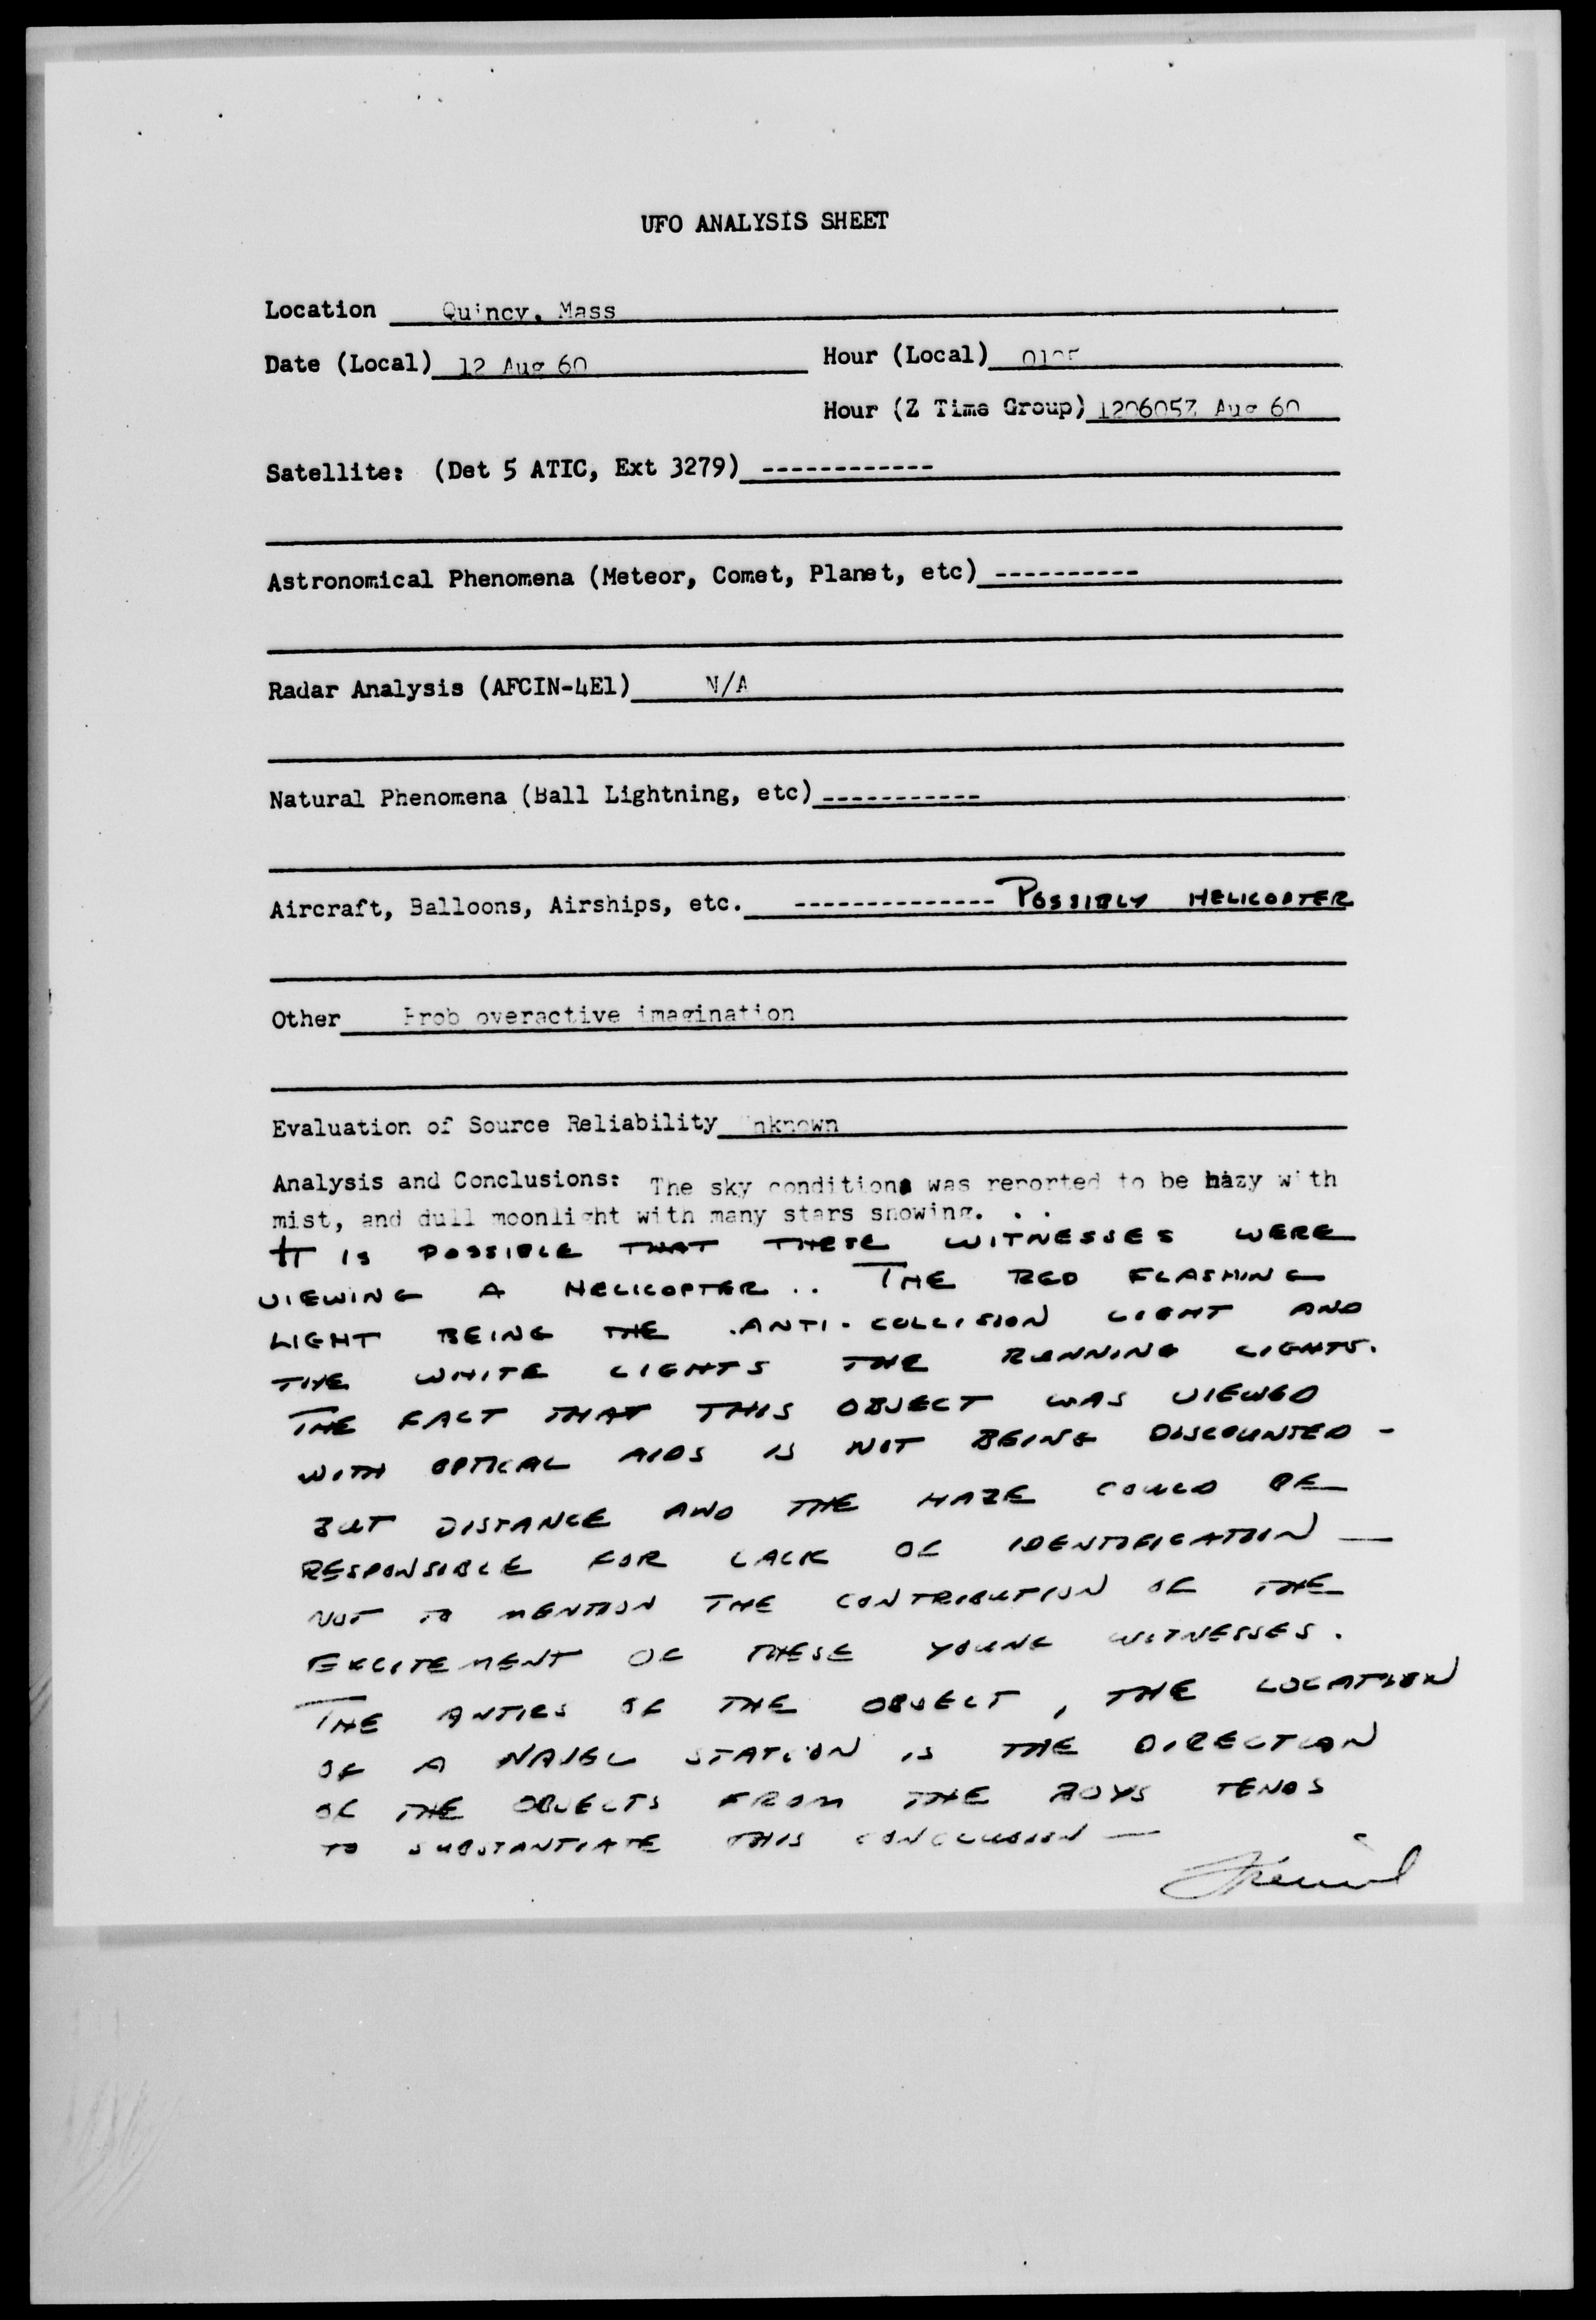 UFO ANALYSIS SHEET
Location Quincy, Mass
Date (Local) 12 Aug 60 Hour (Local)
Hour (Z Time Group) 120605Z Aug 60
Satellite: (Det 5 ATIC, Ext 3279) ------------
Astronomical Phenomena (Meteor, Comet, Planet, etc) ----------
Radar Analysis (AFCIN-4E1) N/A
Natural Phenomena (Ball Lightning, etc) -----------
Aircraft, Balloons, Airships, etc. -------------- POSSIBLY HELICOPTER
Other Prob overactive imagination
Evaluation of Source Reliability Unknown
Analysis and Conclusions: The sky conditions was reported to be hazy with
mist, and dull moonlight with many stars showing. . .
IT IS POSSIBLE THAT THESE WITNESSES WERE
VIEWING A HELICOPTER .. THE RED FLASHING
LIGHT BEING THE ANTI-COLLISION LIGHT AND
THE WHITE LIGHTS THE RUNNING LIGHTS.
THE FACT THAT THIS OBJECT WAS VIEWED
WITH OPTICAL AIDS IS NOT BEING DISCOUNTED -
BUT DISTANCE AND THE HAZE COULD BE
RESPONSIBLE FOR LACK OF IDENTIFICATION —
NOT TO MENTION THE CONTRIBUTION OF THE
EXCITEMENT OF THESE YOUNG WITNESSES.
THE ANTICS OF THE OBJECT, THE LOCATION
OF A NAVAL STATION IS THE DIRECTION
OF THE OBJECTS FROM THE BOYS TENDS
TO SUBSTANTIATE THIS CONCLUSION —